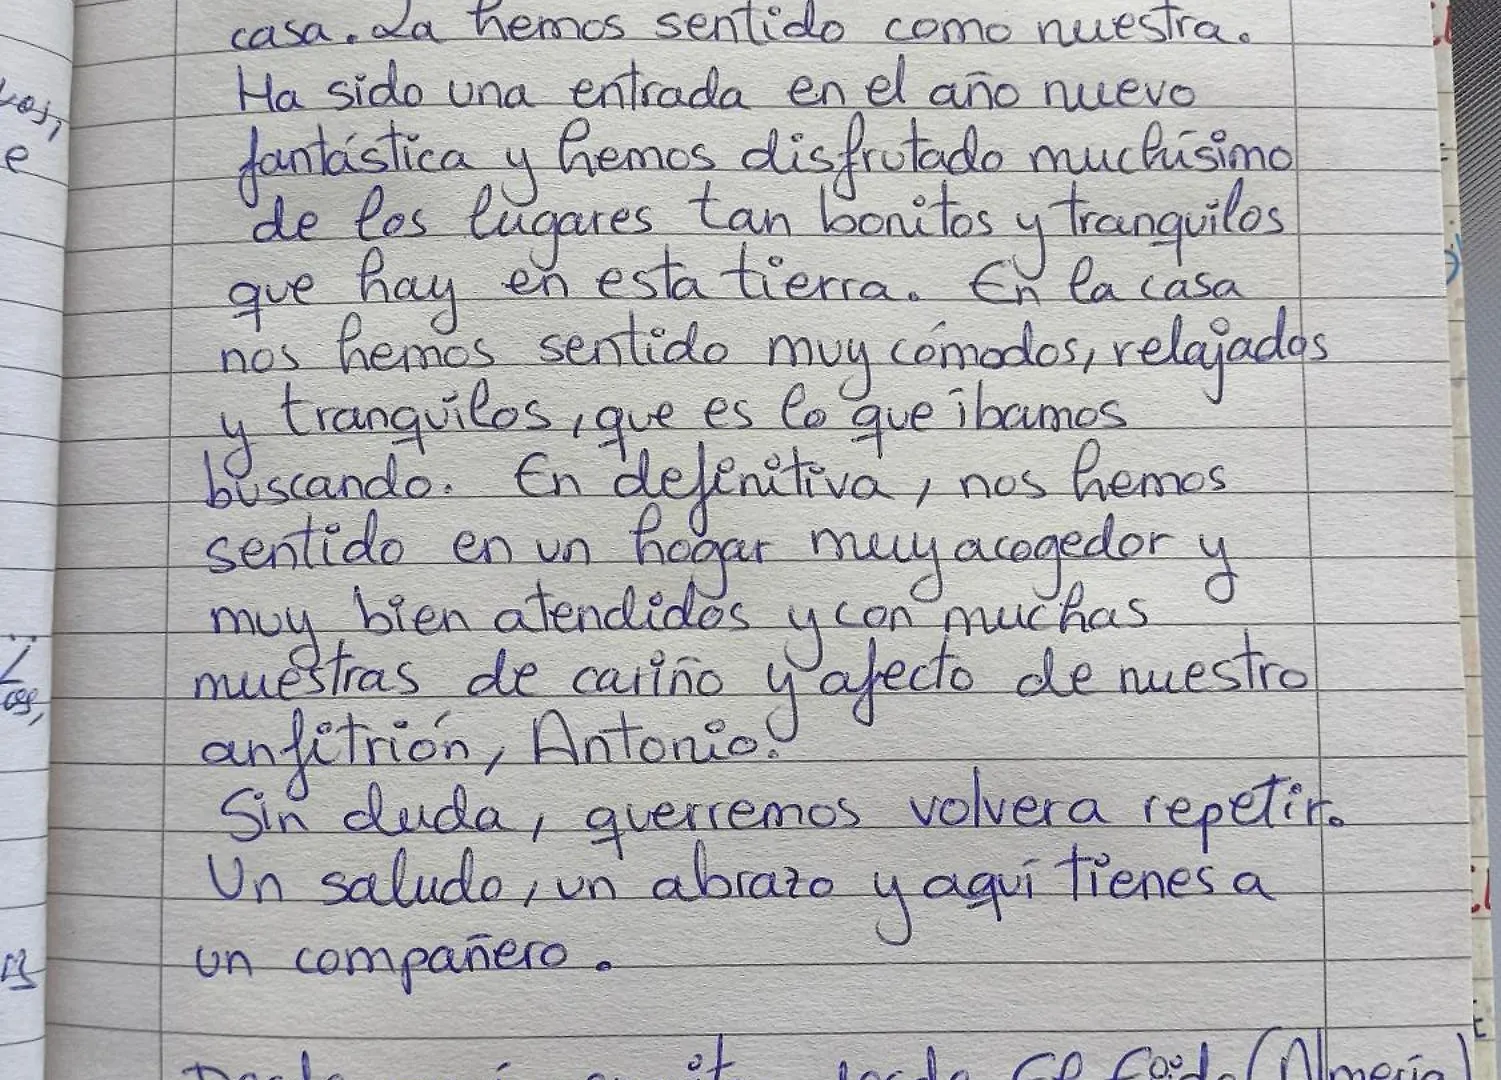 casa. La hemos sentido como nuestra.
Ha sido una entrada en el año nuevo
fantástica y hemos disfrutado muchísimo
de los lugares tan bonitos y tranquilos
que hay en esta tierra. En la casa
nos hemos sentido muy cómodos, relajados
y tranquilos, que es lo que ibamos
buscando. En definitiva, nos hemos
sentido en un hogar muy acogedor y
muy bien atendidos y con muchas
muestras de cariño y afecto de nuestro
anfitrión, Antonio.
Sin duda, querremos volver a repetir.
Un saludo, un abrazo y aquí tienes a
un compañero.
(Almería)